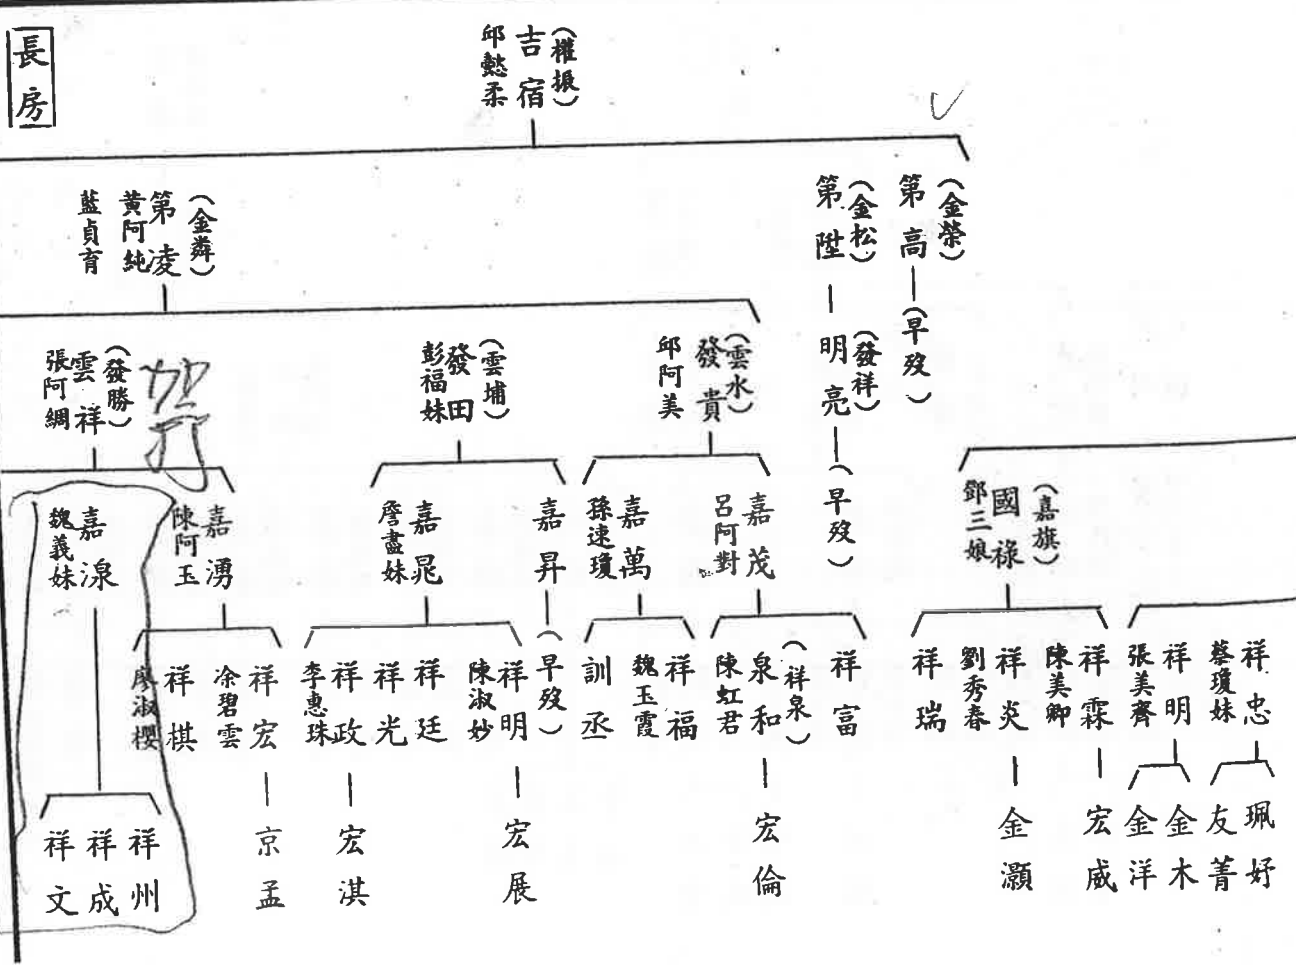 長房
(權振)
吉宿
邱懿柔
(金榮)
第高
(早歿)
(金松)
第陞
(發祥)
明亮
(早歿)
(金舜)
第凌
黃阿純
藍貞育
(雲水)
發貴
邱阿美
(雲埔)
發田
彭福妹
(發勝)
雲祥
張阿綢
(嘉旗)
國祿
鄧三娘
嘉茂
呂阿對
嘉萬
孫速瓊
嘉昇
(早歿)
嘉晁
詹盡妹
嘉湧
陳阿玉
嘉湶
魏義妹
祥忠
蔡瓊妹
祥明
張美齊
祥霖
陳美卿
祥炎
劉秀春
祥瑞
祥富
(祥泉)
泉和
陳虹君
祥福
魏玉霞
訓丞
祥明
陳淑妙
祥廷
祥光
祥政
李惠珠
祥宏
凃碧雲
祥棋
廖淑櫻
珮妤
友菁
金木
金洋
宏威
金灝
宏倫
宏展
宏淇
京孟
祥州
祥成
祥文